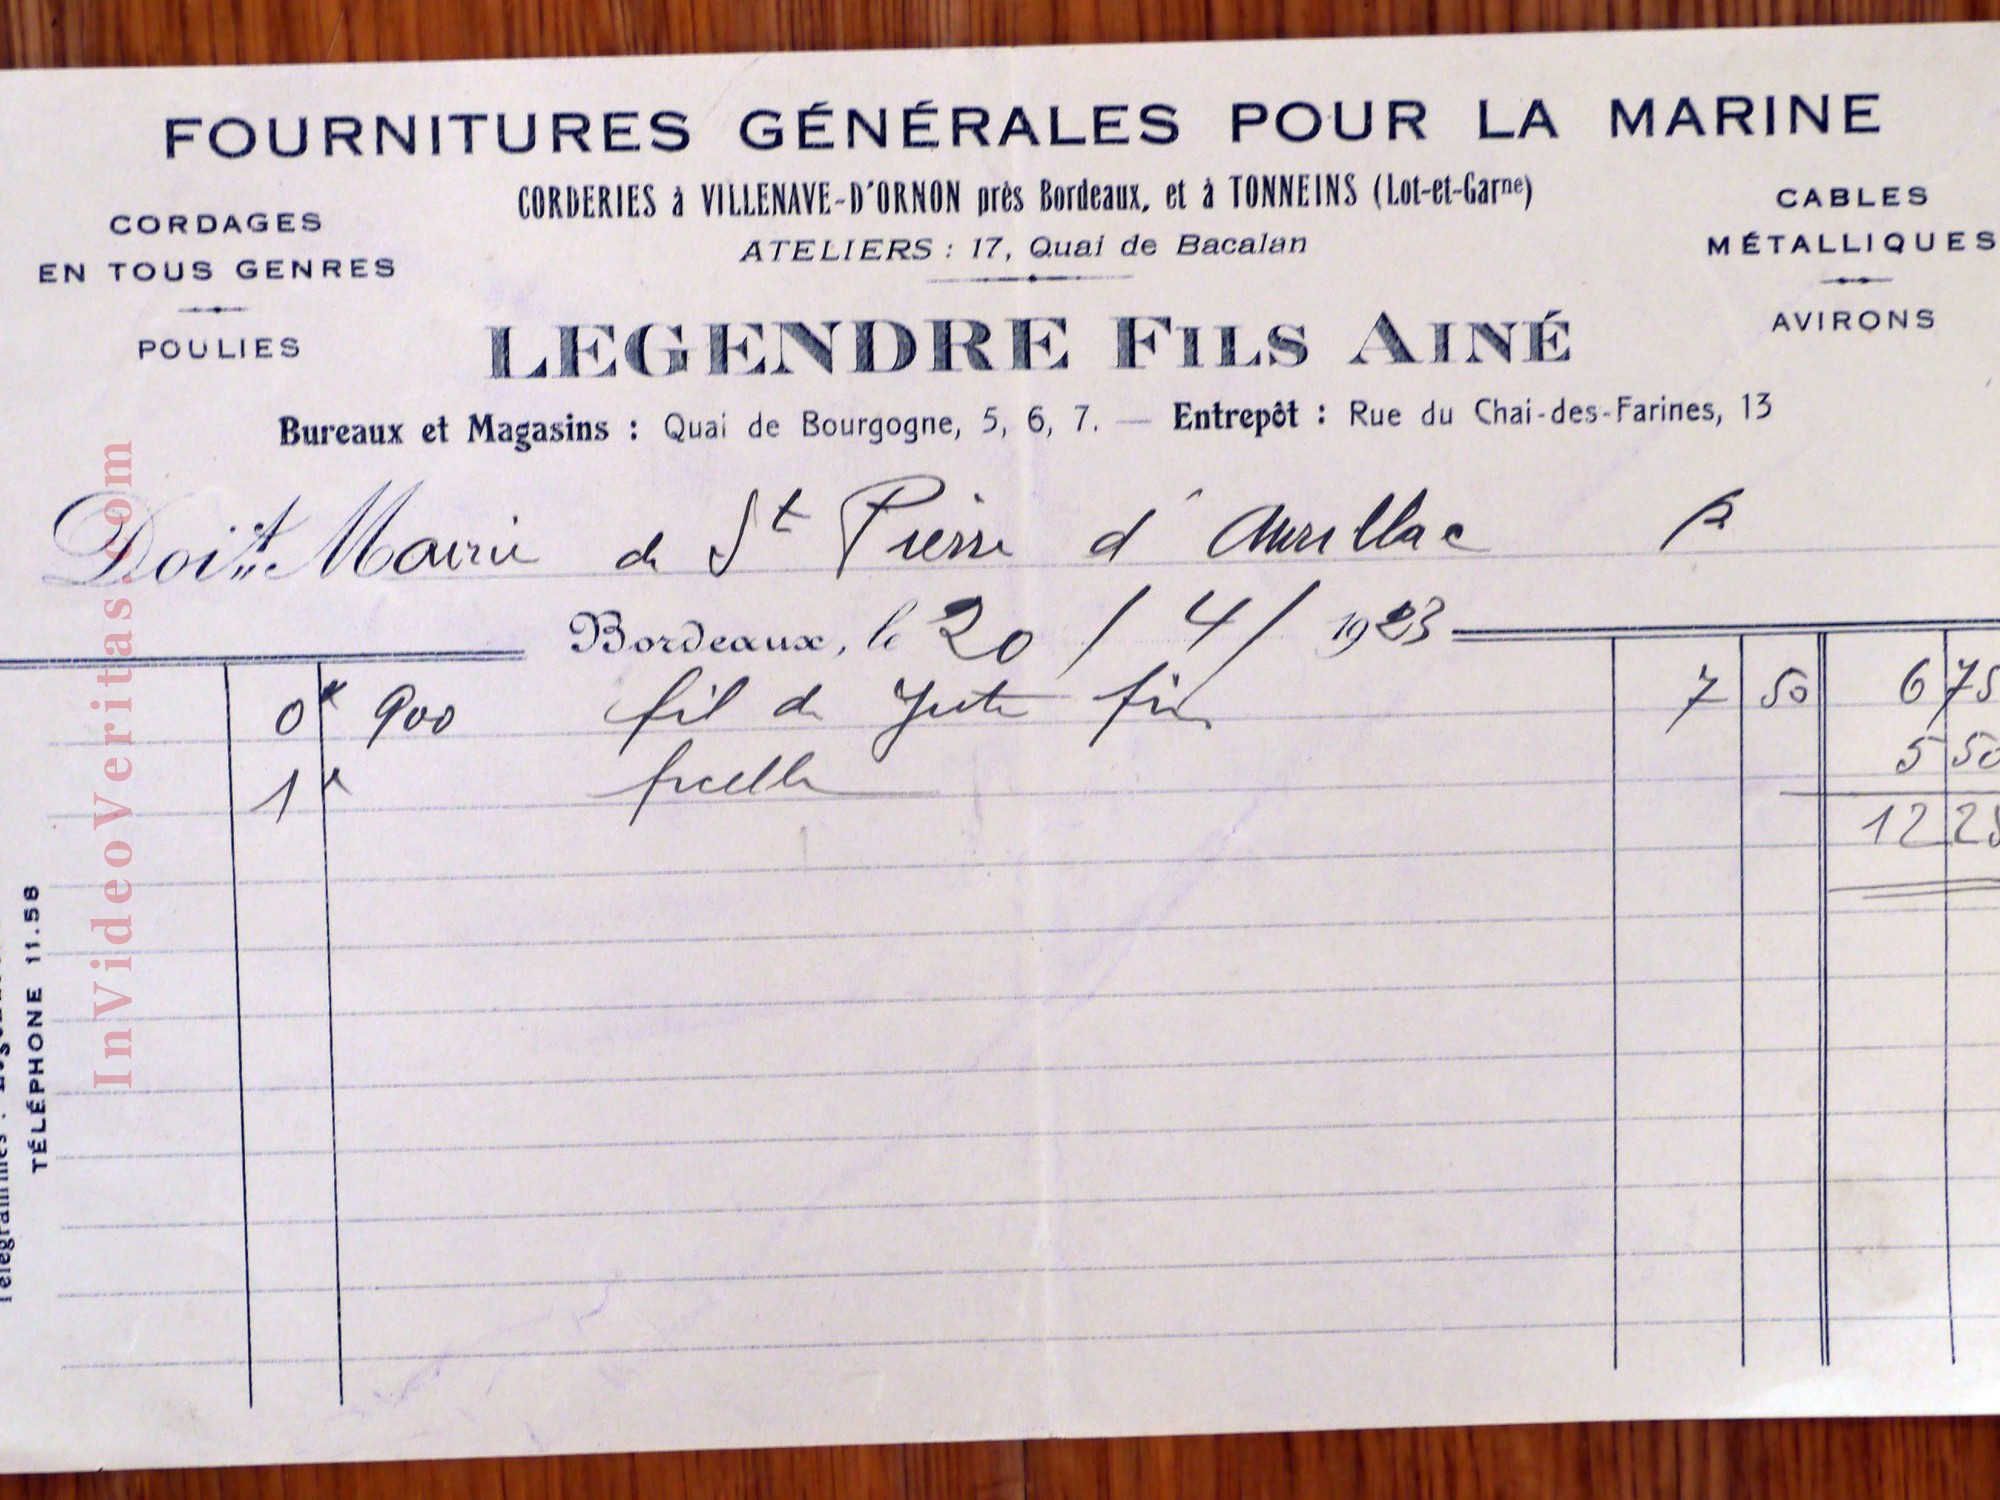 FOURNITURES GÉNÉRALES POUR LA MARINE
CORDERIES à VILLENAVE-D'ORNON près Bordeaux, et à TONNEINS (Lot-et-Garne)
ATELIERS : 17, Quai de Bacalan
CORDAGES
EN TOUS GENRES
POULIES
CABLES
MÉTALLIQUES
AVIRONS
LEGENDRE FILS AINÉ
Bureaux et Magasins : Quai de Bourgogne, 5, 6, 7. — Entrepôt : Rue du Chai-des-Farines, 13
Doit Mairie de St Pierre d'Aurillac
Bordeaux, le 20 / 4 / 1923
0k 900 fil de Jute fin 7 50 6 75
1k ficelle 5 50
12 25
TÉLÉPHONE 11.58
InVideoVeritas.com